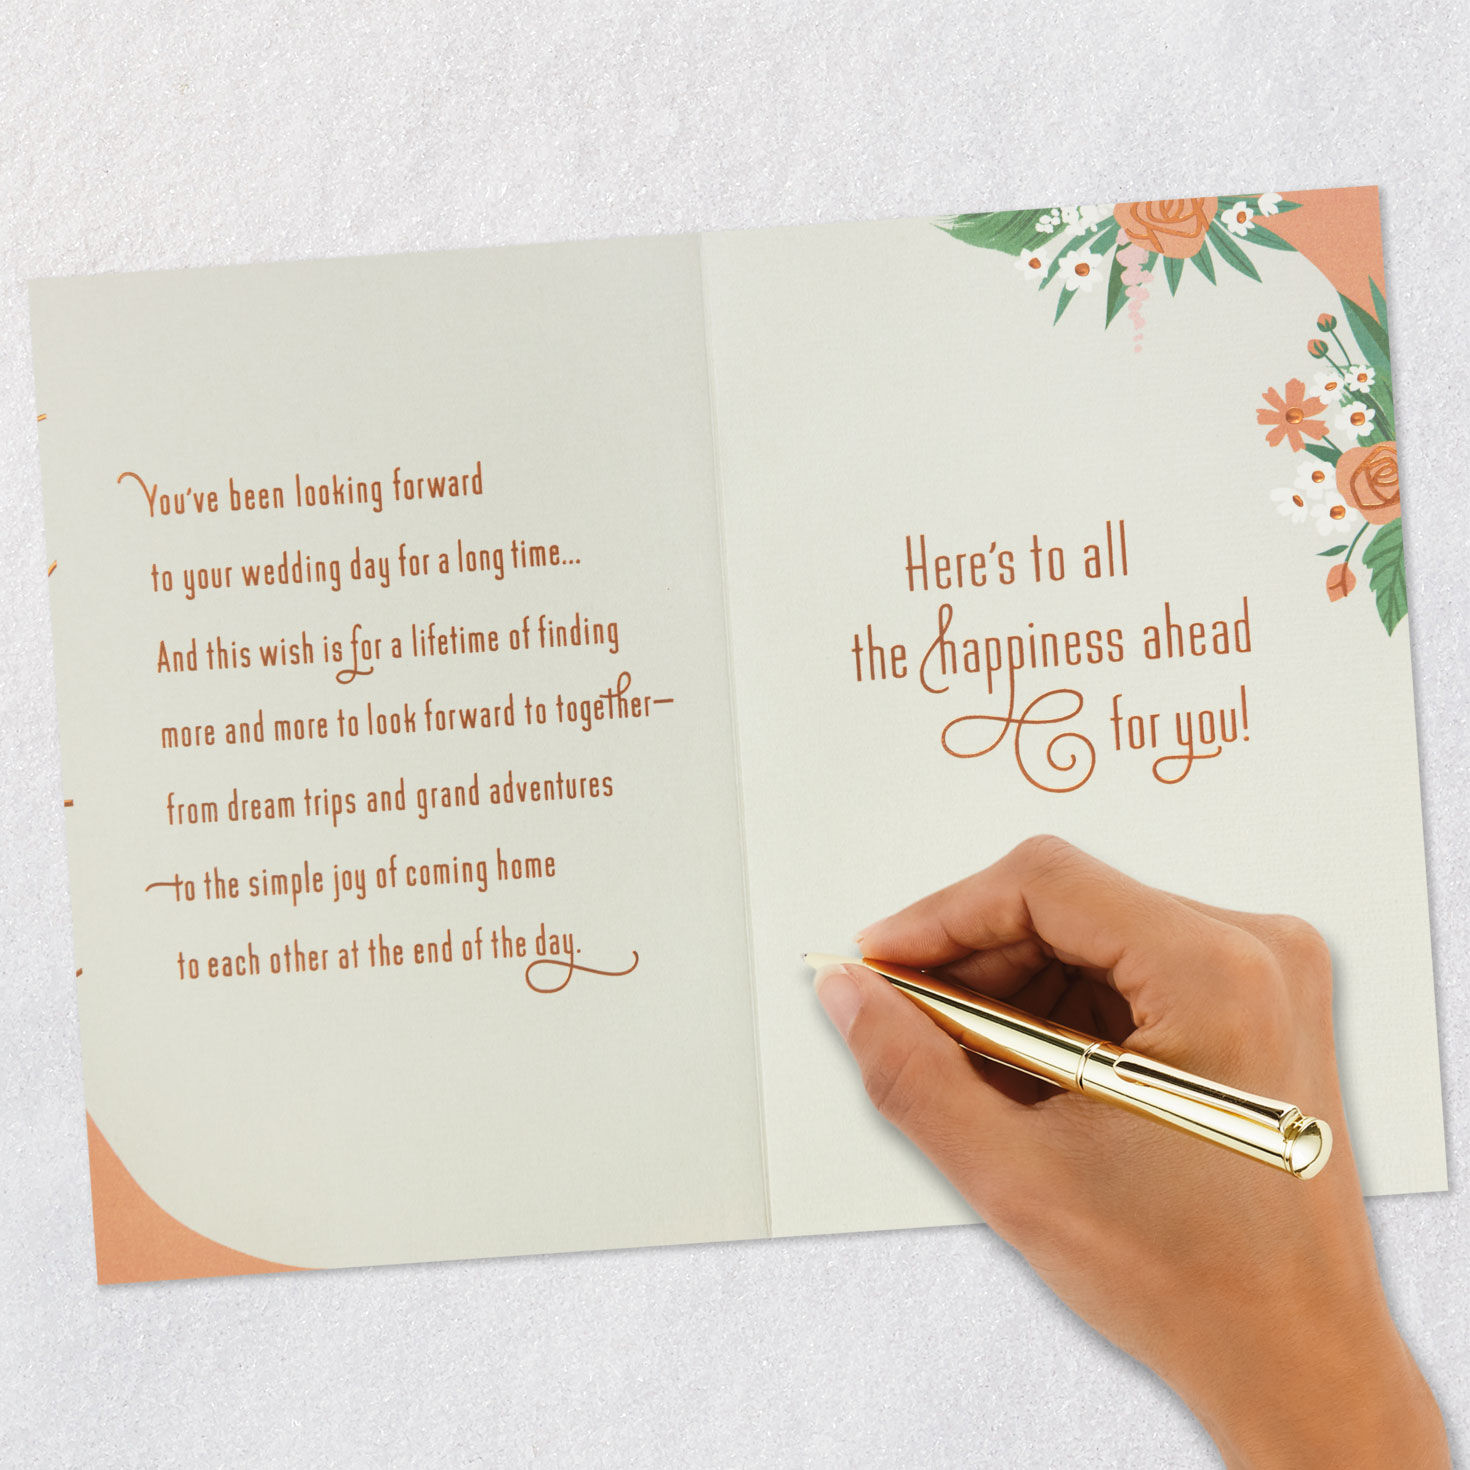 You've been looking forward
to your wedding day for a long time...
And this wish is for a lifetime of finding
more and more to look forward to together—
from dream trips and grand adventures
to the simple joy of coming home
to each other at the end of the day.
Here's to all
the happiness ahead
for you!